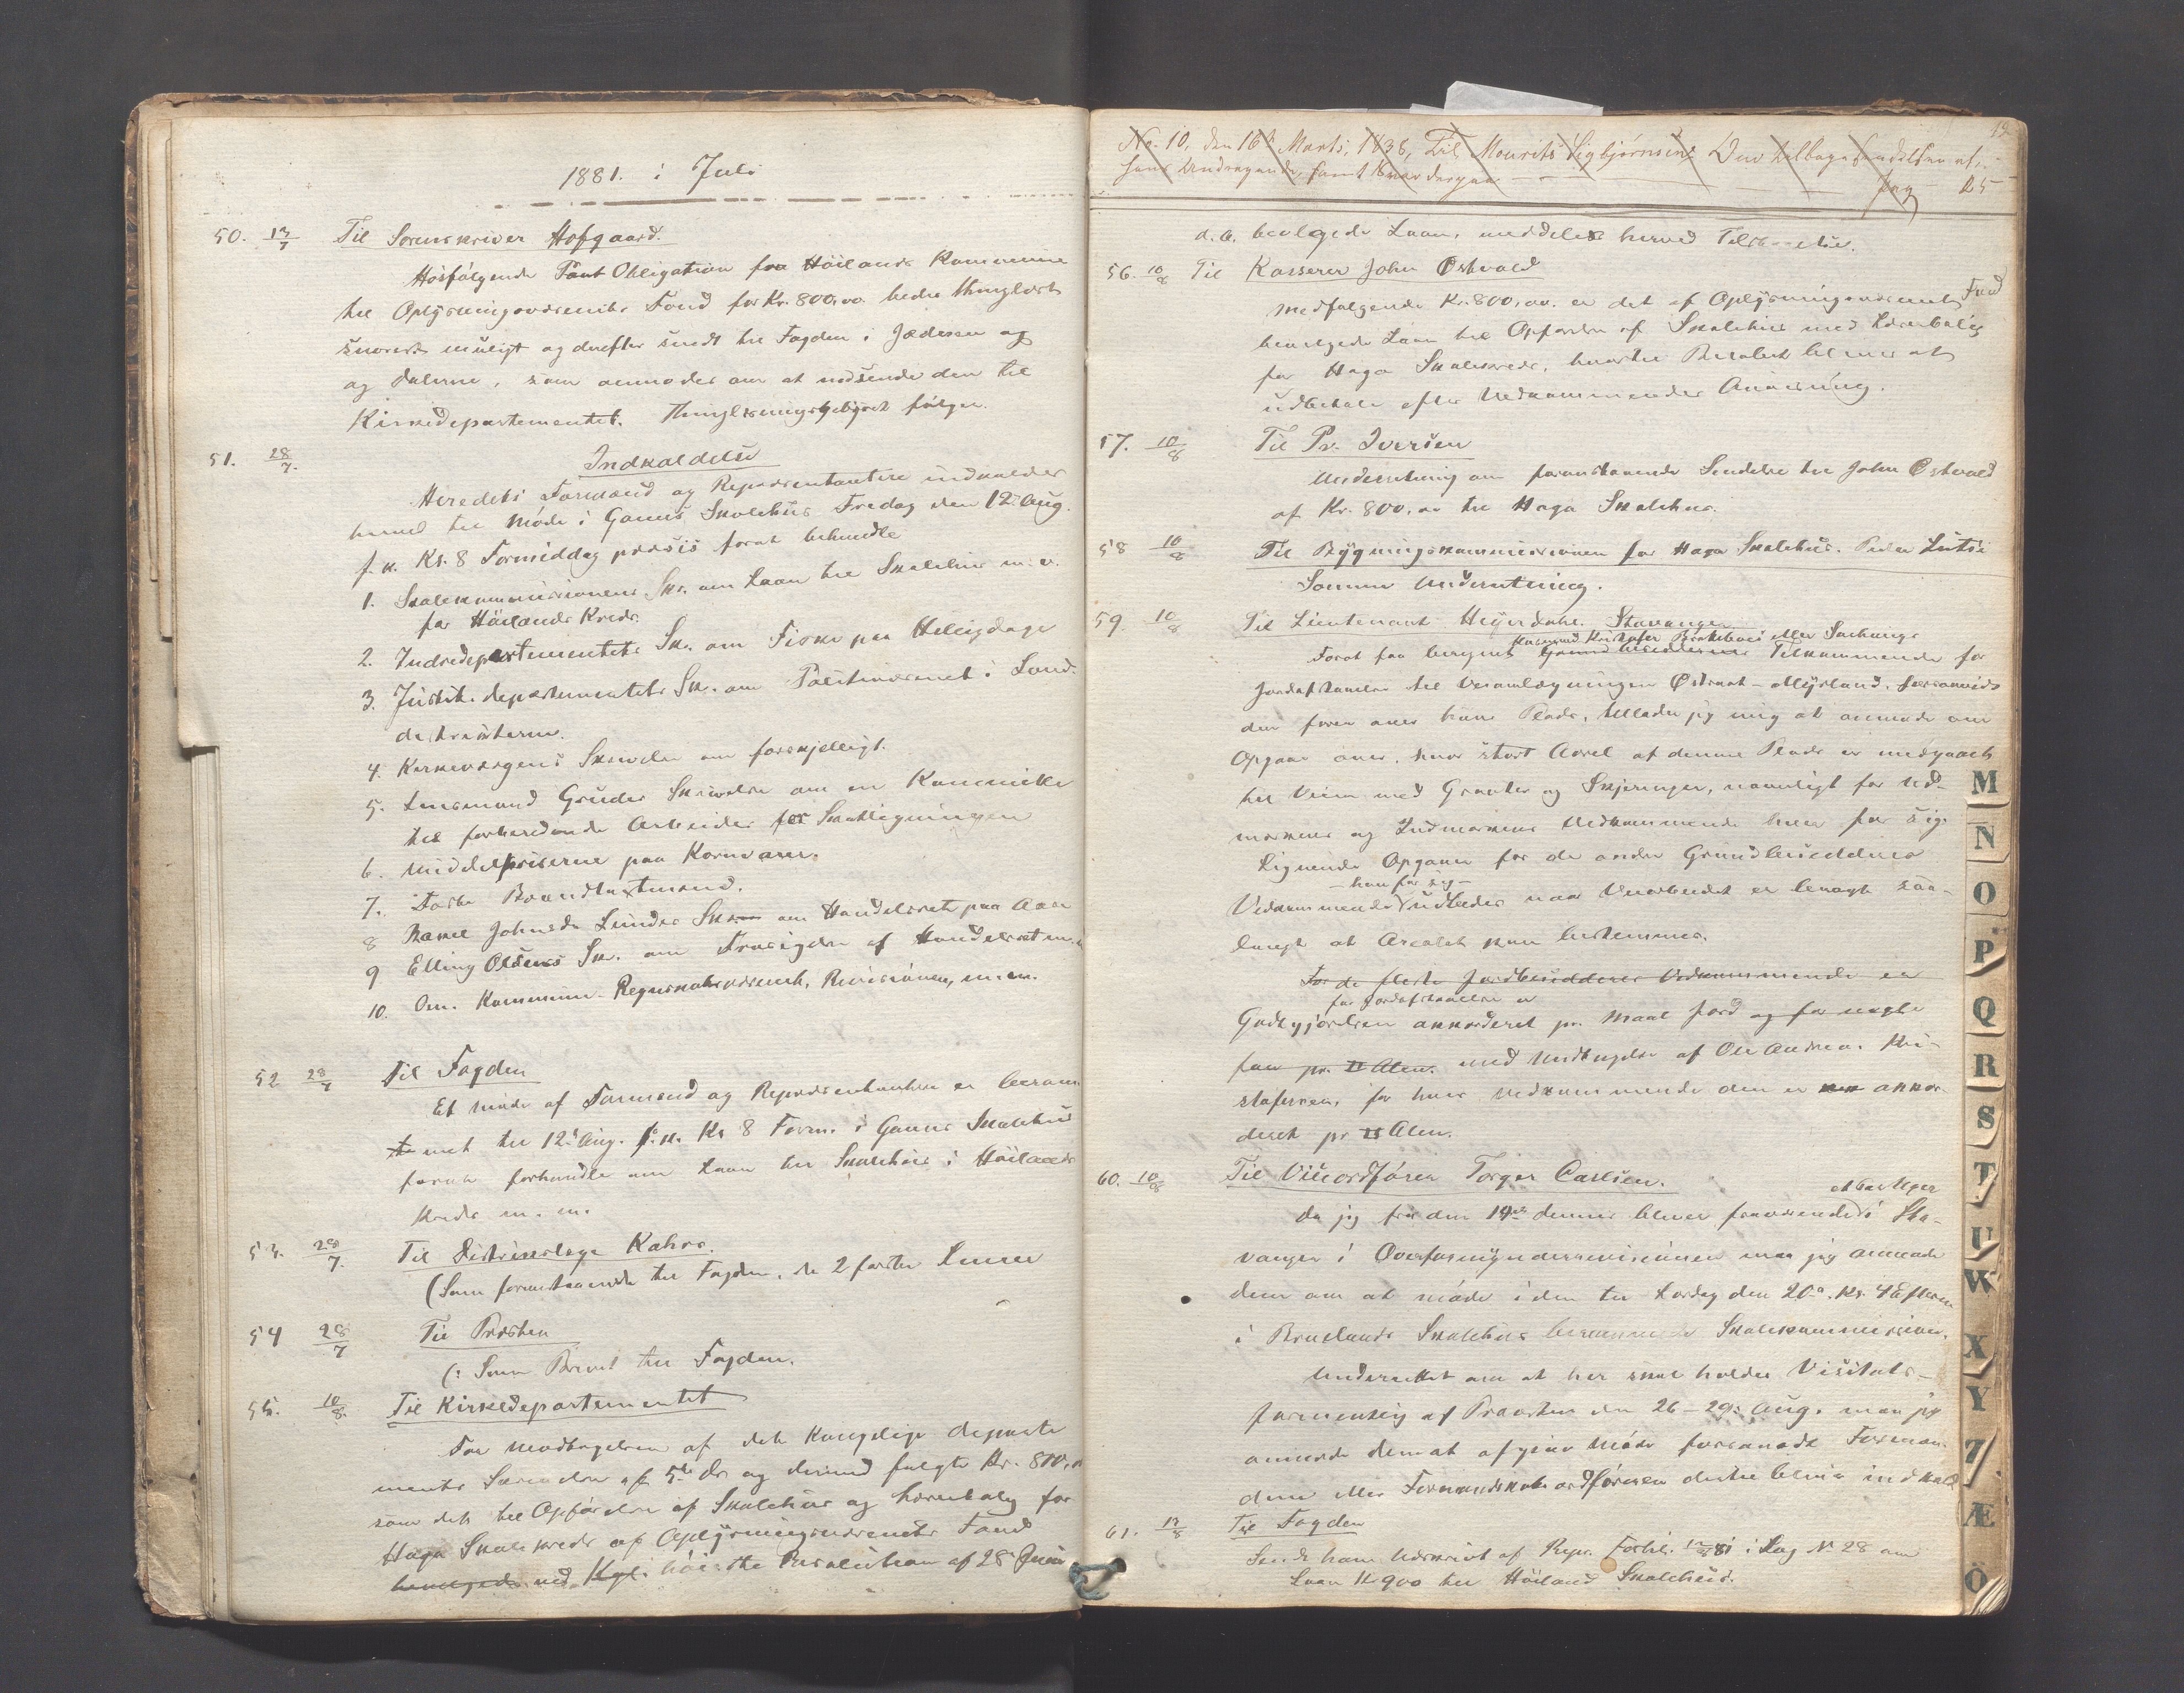 1881. i Juli
50. 13/7 Til Sorenskriver Hofgaard.
Hosfølgende Pant Obligation fra Høilands Kommune
til Oplysningsvæsenets Fond for Kr. 800,00 bedes thinglæst
snarest muligt og derefter sendt til Fogden i Jæderen og
og Dalerne, som anmodes om at nedsende den til
Kirkedepartementet. Thinglæsningsgebyret følger.
51. 28/7. Indkaldelse
Heredets Formænd og Repræsentantere indkaldes
herved til Møde i Gannes Skolehus Fredag den 12te Aug.
f. k. Kl. 8 Formiddag præsis forat behandle
1. Skolekommissionens Skr. om Laan til Skolehus m. v.
for Høilands Kreds.
2. Indredepartementets Skr. om Fiske paa Helligdage
3. Justits. departementets Skr. om Politivæsenet i Land-
distrikterne.
4. Kirkeværgens Skrivelse om forskjelligt.
5. Lensmand Gruders Skrivelse om en Kommitte
til forberedende Arbeider for Skatligningen
6. Middelpriserne paa Kornvarer.
7. Forbe Brandtaxtmænd.
8 Johnsen Lundes Skr. om Handelsret paa Aase
9 Elling Olsens Skr. om Frasigelse af Handelsret m.m.
10. Om. Kommune-Regnskabsvæsenet, Revisionen, m. m.
52 28/7 Til Fogden
Et Møde af Formænd og Repræsentanter er beram-
met til 12te Aug. f. k. Kl 8 Form. i Gannes Skolehus
forat forhandle om Laan til Skolehus i Høilands
Kreds m. m.
53. 28/7. Til Distriktslæge Kahrs.
(Som foranstaaende til Fogden, de 2 første Linier
54 28/7 Til Presten
(: Som Brevet til Fogden.
55. 10/8. Til Kirkedepartementet
For Modtagelsen af det Kongelige departe
ments Skrivelse af 5te ds og dermed fulgte Kr. 800,00
som det til Opførelse af Skolehus og Lærerbolig for
Haga Skolekreds af Oplysningsvæsenets Fond
bevilgede ved Kgl. høieste Resolution af 28 Juni
No. 10, den 16de Marts, 1838, Til Mourits Sigbjørnsen Ved tilbagesendelsen af
hans Andragende, samt
Pag - 25
19
d. A. bevilgede Laan, meddeles herved Tilstaaelse.
56. 10/8 Til Kasserer John Østvold
Medfølgende Kr. 800,00. er det af Oplysningsvæsenets Fond
bevilgede Laan til Opførelse af Skolehus med Lærerbolig
for Haga Skolekreds, hvortil Beløbet blive at
udbetale efter Vedkommendes Anvisning.
57. 10/8 Til Pr. Iversen
Underretning om foranstaaende Sendelse til John Østvold
af Kr. 800,00 til Haga Skolehus.
58 10/8 Til Bygningskommissionen for Haga Skolehus. Peder Lutsi
Samme Underretning.
59. 10/8 Til Lieutenant Heyerdahl. Stavanger
Husmand Kristofer eller
Forat faa beregnet Grundbesiddernes Tilkommende for
Jordafstaaelse til Veiomlægningen Østraat - Myrland, forsaavidt
den fører over hans Plads, tillader jeg mig at anmode om
Opgave over, hvor stort Areal af denne Plads er medgaaet
til Veien med Grøvter og Skjeringer, navnligt for Ud-
markens og Indmarkens Vedkommende hver for sig.
Lignende Opgaver for de andre Grundbesidderes
- hver for sig -
Vedkommende udbedes naar Veiarbeidet er bragt saa-
langt at Arealet kan bestemmes.
For de fleste Jordbesidderes Vedkommende er
for Jordafstaaelse er
Godtgjørelsen akkorderet pr. Maal Jord og for nogle
faa pr. □ Alen. med Undtagelse af Ole Andreas Kri-
stofersen, for hvis Vedkommende den er akkor-
deret pr □ Alen.
60. 10/8 Til Viceordfører Torger Carlsen.
Da jeg fra den 19de dennes bliver fraværende i Sta-
vanger i Overformynderrevisionen maa jeg anmode
dem om at møde i den til Lørdag den 20de. Kl. 4 Efterm
i Bruelands Skolehus berammede Skolekommission.
Underrettet om at her skal holdes Visitats-
forretning af Provsten den 26-29. Aug. maa jeg
anmode dem at afgive Møde forsaavidt Forman-
dene eller Formandskabsordføreren dertil bliver indkaldt
61. 13/8 Til Fogden
Sendt ham Udskrivt af Repr. Forhl. 12/8 81 i Sag No 28 om
Laan Kr 900 til Høiland Skolehus.
M
N
O
P
Q
R
S
T
U
W
X
Y
Z
Æ
Ö